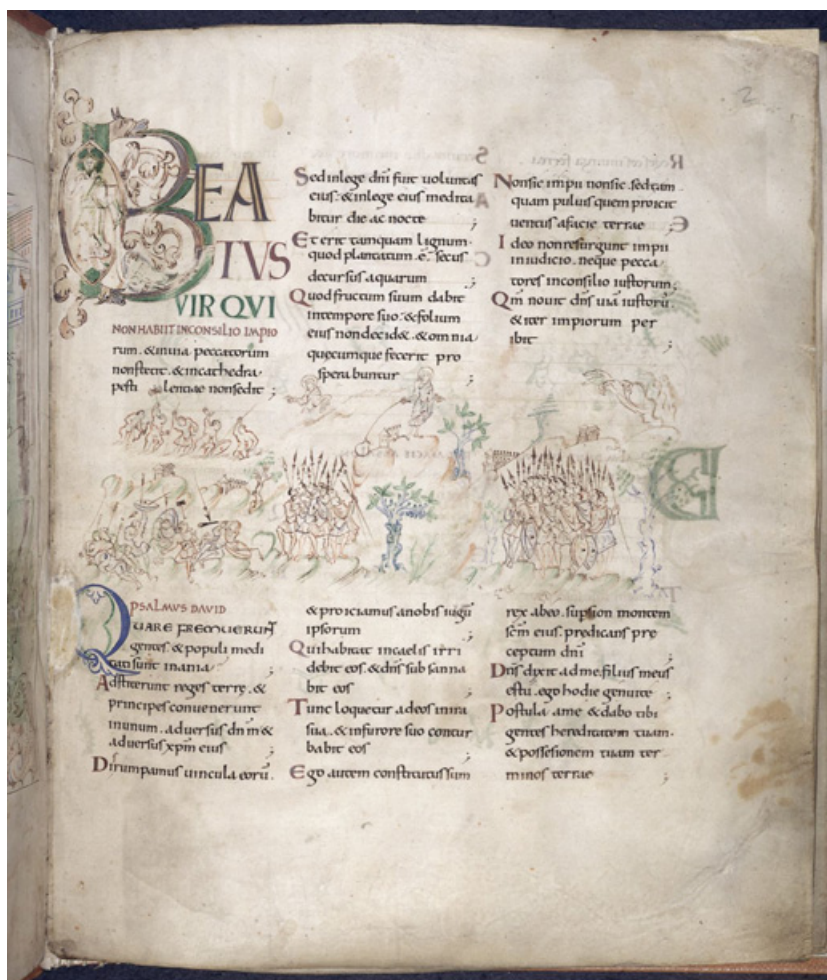 2
BEA
TVS
VIR QVI
NON HABIIT INCONSILIO IMPIO
rum. &inuia peccatorum
nonstetit. &incathedra
pesti lentiae nonsedit ;
Sed inlege dñi fuit uoluntas
eius. &inlege eius medita
bitur die ac nocte ;
Et erit tamquam lignum.
quod plantatum. ē. secus
decursus aquarum ;
Quod fructum suum dabit
intempore suo. &folium
eius non decid&. &omnia
quecumque fecerit pro
spera buntur ;
Nonsic impii nonsic. sed tam
quam puluis quem proicit
uentus afacie terrae ;
Ideo non resurgunt impii
in iudicio. neque pecca
tores inconsilio iustorum ;
Qm̄ nouit dñs uiā iustorū.
&iter impiorum per
ibit ;
PSALMVS DAVID
QUARE FREMUERUNT
gentes. &populi medi
tati sunt inania ;
Adstiterunt reges terrę. &
principes convenerunt
inunum. adversus dñm &
adversus xp̄m eius ;
Dirumpamus uincula eorū.
&proiciamus anobis iugū
ipsorum ;
Qui habitat incaelis irri
debit eos. &dñs subsanna
bit eos ;
Tunc loquetur adeos inira
sua. &infurore suo contur
babit eos ;
Ego autem constitutus sum
rex abeo. supsion montem
sc̄m eius. predicans pre
ceptum dñi ;
Dñs dixit adme. filius meus
estu. ego hodie genuite ;
Postula ame &dabo tibi
gentes hereditatem tuam.
&possesionem tuam ter
minos terrae ;